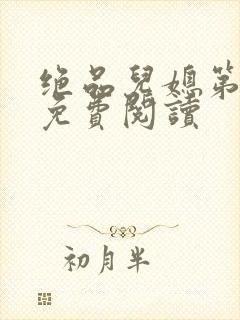 绝品兒媳第
免費閱讀
初月半